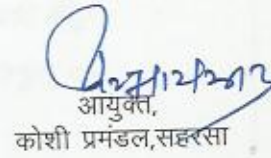 आयुक्त,
कोशी प्रमंडल,सहरसा